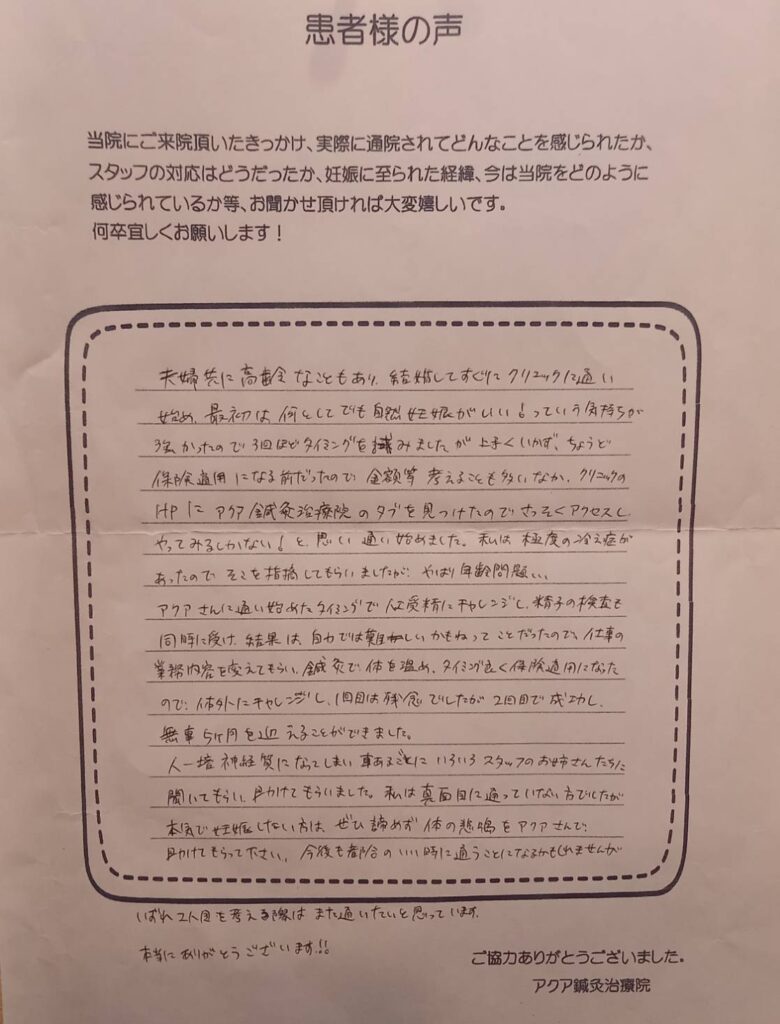 患者様の声
当院にご来院頂いたきっかけ、実際に通院されてどんなことを感じられたか、
スタッフの対応はどうだったか、妊娠に至られた経緯、今は当院をどのように
感じられているか等、お聞かせ頂ければ大変嬉しいです。
何卒宜しくお願いします！
夫婦共に高齢なこともあり、結婚してすぐにクリニックに通い
始め、最初は何としてでも自然妊娠がいい！っていう気持ちが
強かったので3回ほどタイミングを試みましたが上手くいかず、ちょうど
保険適用になる前だったので金額等考えることも多いなか、クリニックの
HPにアクア鍼灸治療院のタブを見つけたのでさっそくアクセスし
やってみるしかない！と思い通い始めました。私は極度の冷え症が
あったのでそこを指摘してもらいましたが、やはり年齢問題、、、
アクアさんに通い始めたタイミングで人工受精にチャレンジし、精子の検査も
同時に受け、結果は、自力では難しいかもねってことだったので、仕事の
業務内容を変えてもらい、鍼灸で体を温め、タイミング良く保険適用になった
ので、体外にチャレンジし、1回目は残念でしたが2回目で成功し、
無事5ヶ月を迎えることができました。
人一倍神経質になってしまい事あるごとにいろいろスタッフのお姉さんたちに
聞いてもらい、助けてもらいました。私は真面目に通っていない方でしたが
本気で妊娠したい方は、ぜひ諦めず体の悲鳴をアクアさんで
助けてもらって下さい。今後も都合のいい時に通うことになるかもしれませんが
いずれ2人目を考える際はまた通いたいと思っています。
本当にありがとうございます!!
ご協力ありがとうございました。
アクア鍼灸治療院